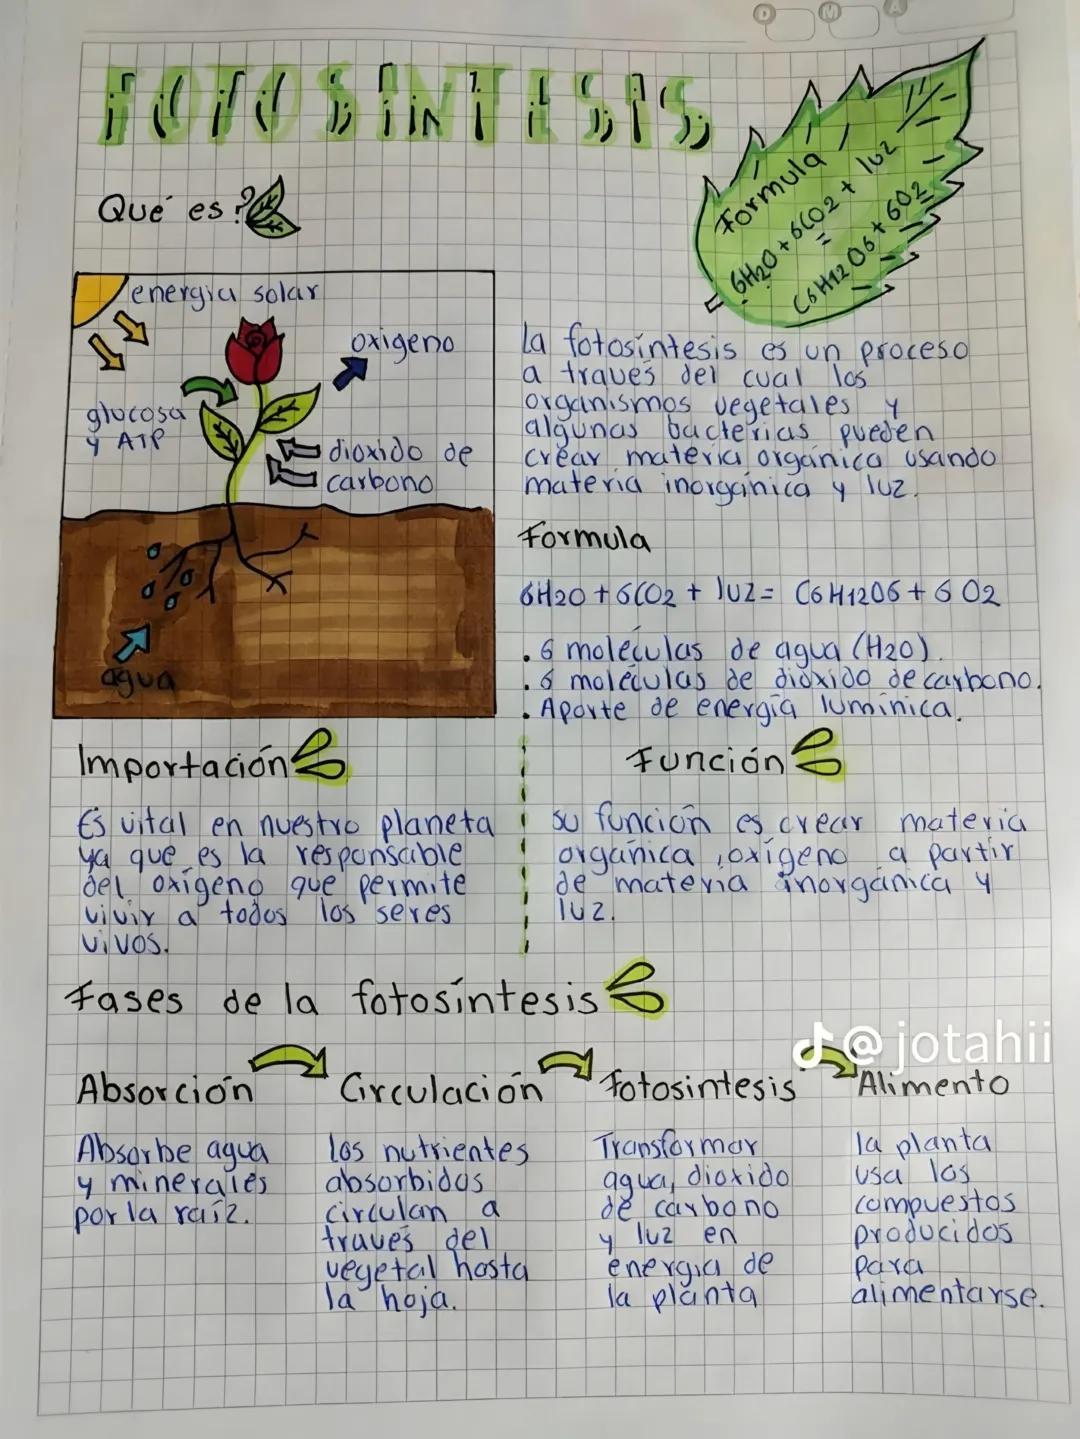 D M A
FOTOSINTESIS
Qué es?
Formula
6H2O + 6CO2 + luz
=
C6H12O6 + 6O2
energia solar
oxigeno
glucosa
y ATP
dioxido de
carbono
agua
La fotosíntesis es un proceso
a través del cual los
organismos vegetales y
algunas bacterias pueden
crear materia orgánica usando
materia inorgánica y luz.
Formula
6H2O + 6CO2 + luz = C6H12O6 + 6 O2
. 6 moléculas de agua (H2O).
. 6 moléculas de dióxido de carbono.
. Aporte de energía lumínica.
Importación
Es vital en nuestro planeta
ya que es la responsable
del oxígeno que permite
vivir a todos los seres
vivos.
Función
su función es crear materia
orgánica, oxígeno a partir
de materia inorgánica y
luz.
Fases de la fotosíntesis
@jotahii
Absorción
Absorbe agua
y minerales
por la raíz.
Circulación
los nutrientes
absorbidos
circulan a
través del
vegetal hasta
la hoja.
fotosintesis
Transformar
agua, dioxido
de carbono
y luz en
energia de
la planta
Alimento
la planta
usa los
compuestos
producidos
para
alimentarse.